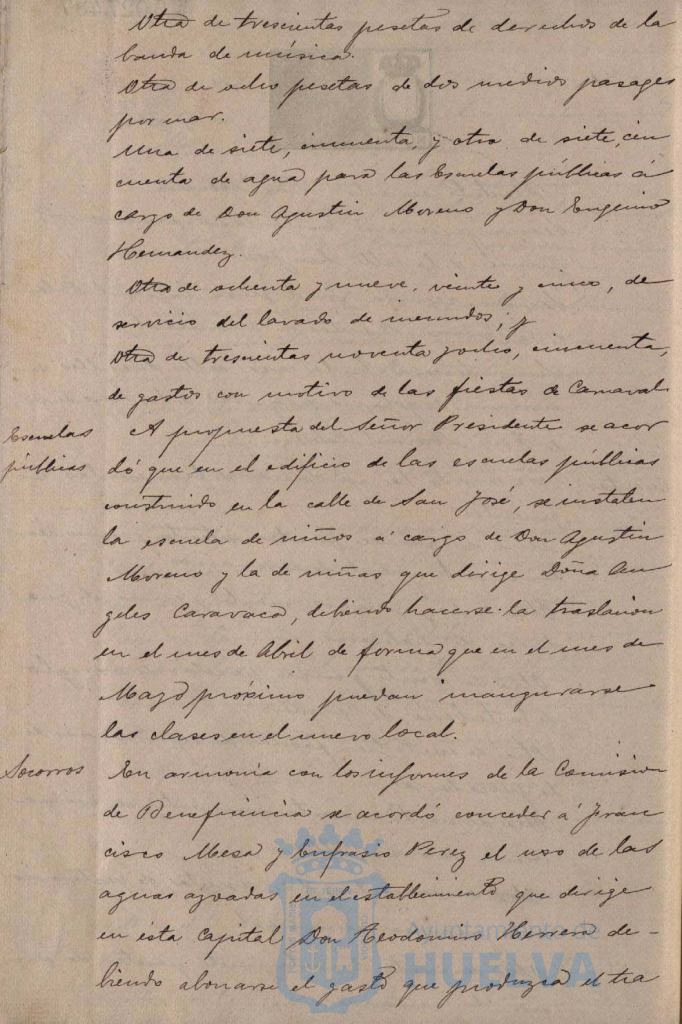 Otra de trescientas pesetas de derechos de la
banda de música.
Otra de ocho pesetas de dos medios pasages
por mar.
Una de siete, cincuenta, y otra de siete, cin
cuenta de agua para las Escuelas públicas á
cargo de Don Agustin Moreno y Don Eugenio
Hernandez.
Otra de ochenta y nueve, veinte y cinco, de
servicio del lavado de inmundos; y
Otra de trescientas noventa y ocho, cincuenta,
de gastos con motivo de las fiestas de Carnaval.
Escuelas
públicas
A propuesta del Señor Presidente se acor
dó que en el edificio de las escuelas públicas
construido en la calle de San José, se instalen
la escuela de niños á cargo de Don Agustin
Moreno y la de niñas que dirige Doña An
geles Caravaca, debiendo hacerse la traslacion
en el mes de Abril de forma que en el mes de
Mayo próximo puedan inaugurarse
las clases en el nuevo local.
Socorros
En armonía con los informes de la Comision
de Beneficencia se acordó conceder á Fran
cisco Mesa y Eufrasio Perez el uso de las
aguas azoadas en el establecimiento que dirige
en esta Capital Don Teodomiro Herrera de-
biendo abonarse el gasto que produzca el tra
Ayuntamiento de
HUELVA